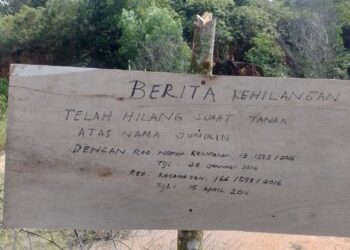 BERITA KEHILANGAN
TELAH HILANG SURAT TANAH
ATAS NAMA JUMIKIN
DENGAN REG NOMOR KELURAHAN 13 1593/2016
TGL: 28 JANUARI 2016
REG KECAMATAN. 166/593/2016
TGL: 15 APRIL 2016